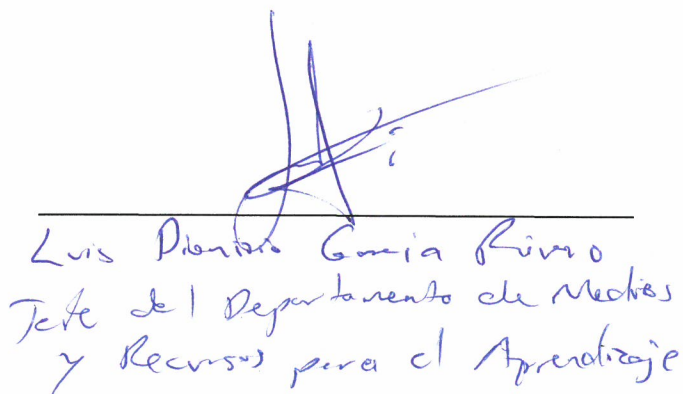 Luis Dionisio García Rivero
Jefe del Departamento de Medios
y Recursos para el Aprendizaje